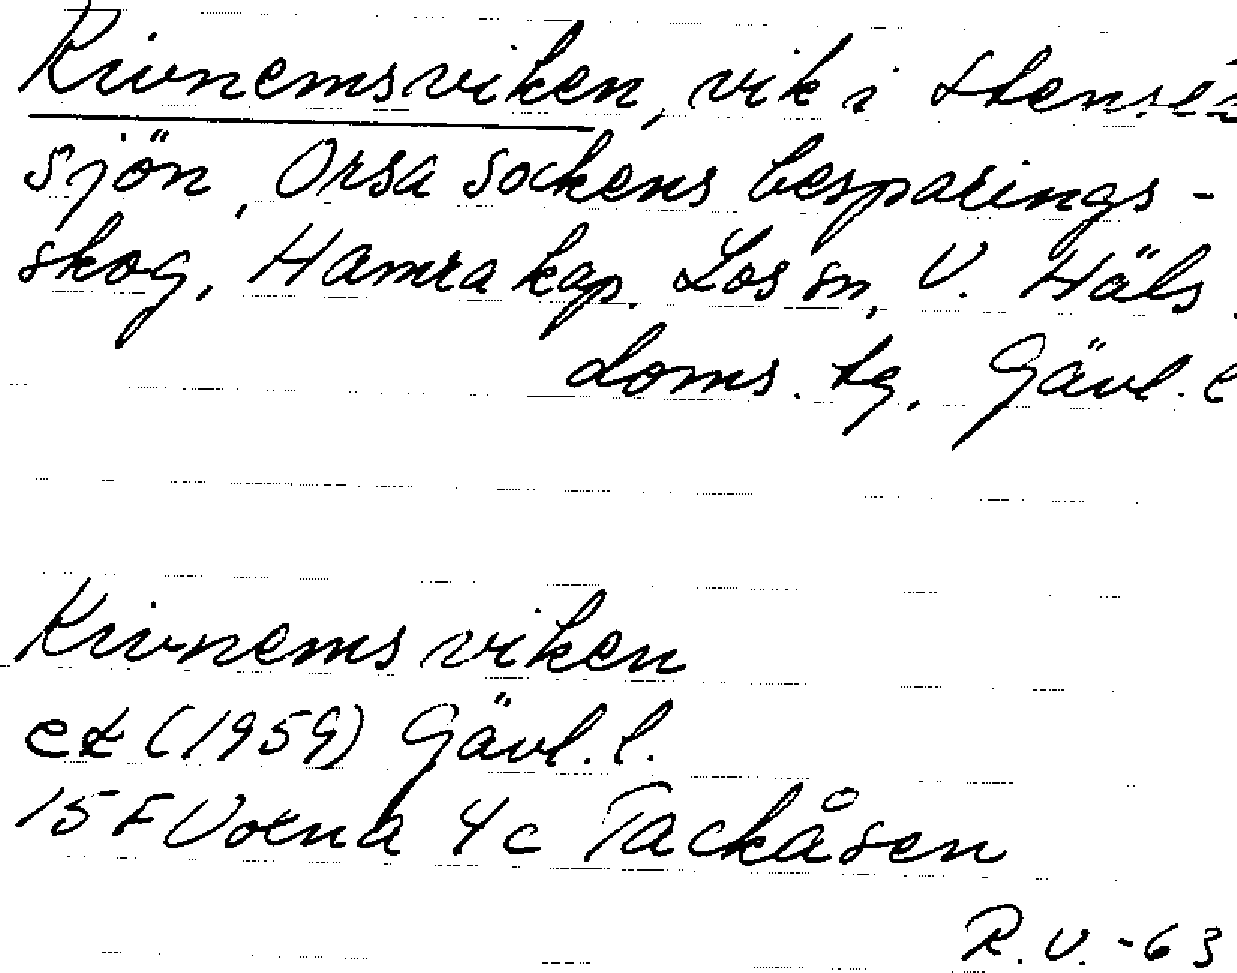 Kivnemsviken, vik i
sjön, Orsa sockens besparings-
skog, Hamra kap. Los sn, V. Häls.
doms. tg, Gävl. l
Kivnemsviken
ek (1959) Gävl. l.
15 F Voxna 4c Tackåsen
R.V. -63